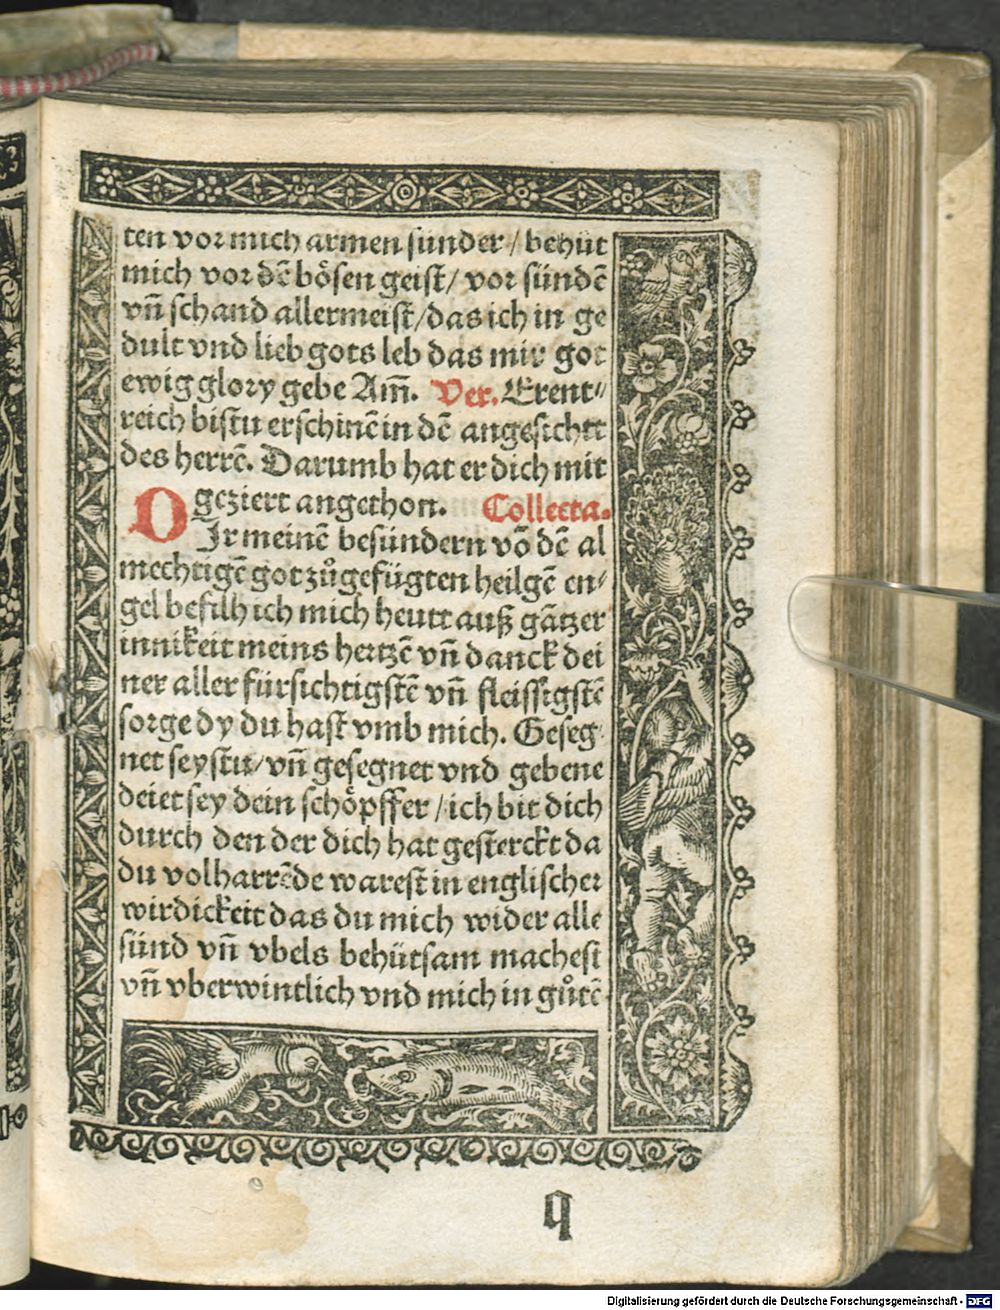 ten vor mich armen sunder / behüt
mich vor dē bösen geist / vor sündē
vn̄ schand allermeist / das ich in ge
dult vnd lieb gots leb das mir got
ewig glory gebe Am̄. Ver. Erent⸗
reich bistu erschinē in dē angesichtt
des herrē. Darumb hat er dich mit
geziert angethon. Collecta.
O Ir meinē besundern vō dē al
mechtigē got zůgefügten heilgē en⸗
gel befilh ich mich heutt auß gātzer
innikeit meins hertzē vn̄ danck dei
ner aller fürsichtigstē vn̄ fleissigstē
sorge dy du hast vmb mich. Geseg
net seystu / vn̄ gesegnet vnd gebene
deiet sey dein schöpffer / ich bit dich
durch den der dich hat gesterckt da
du volharrēde warest in englischer
wirdickeit das du mich wider alle
sünd vn̄ vbels behütsam machest
vn̄ vberwintlich vnd mich in gůtē
q
Digitalisierung gefördert durch die Deutsche Forschungsgemeinschaft - DFG